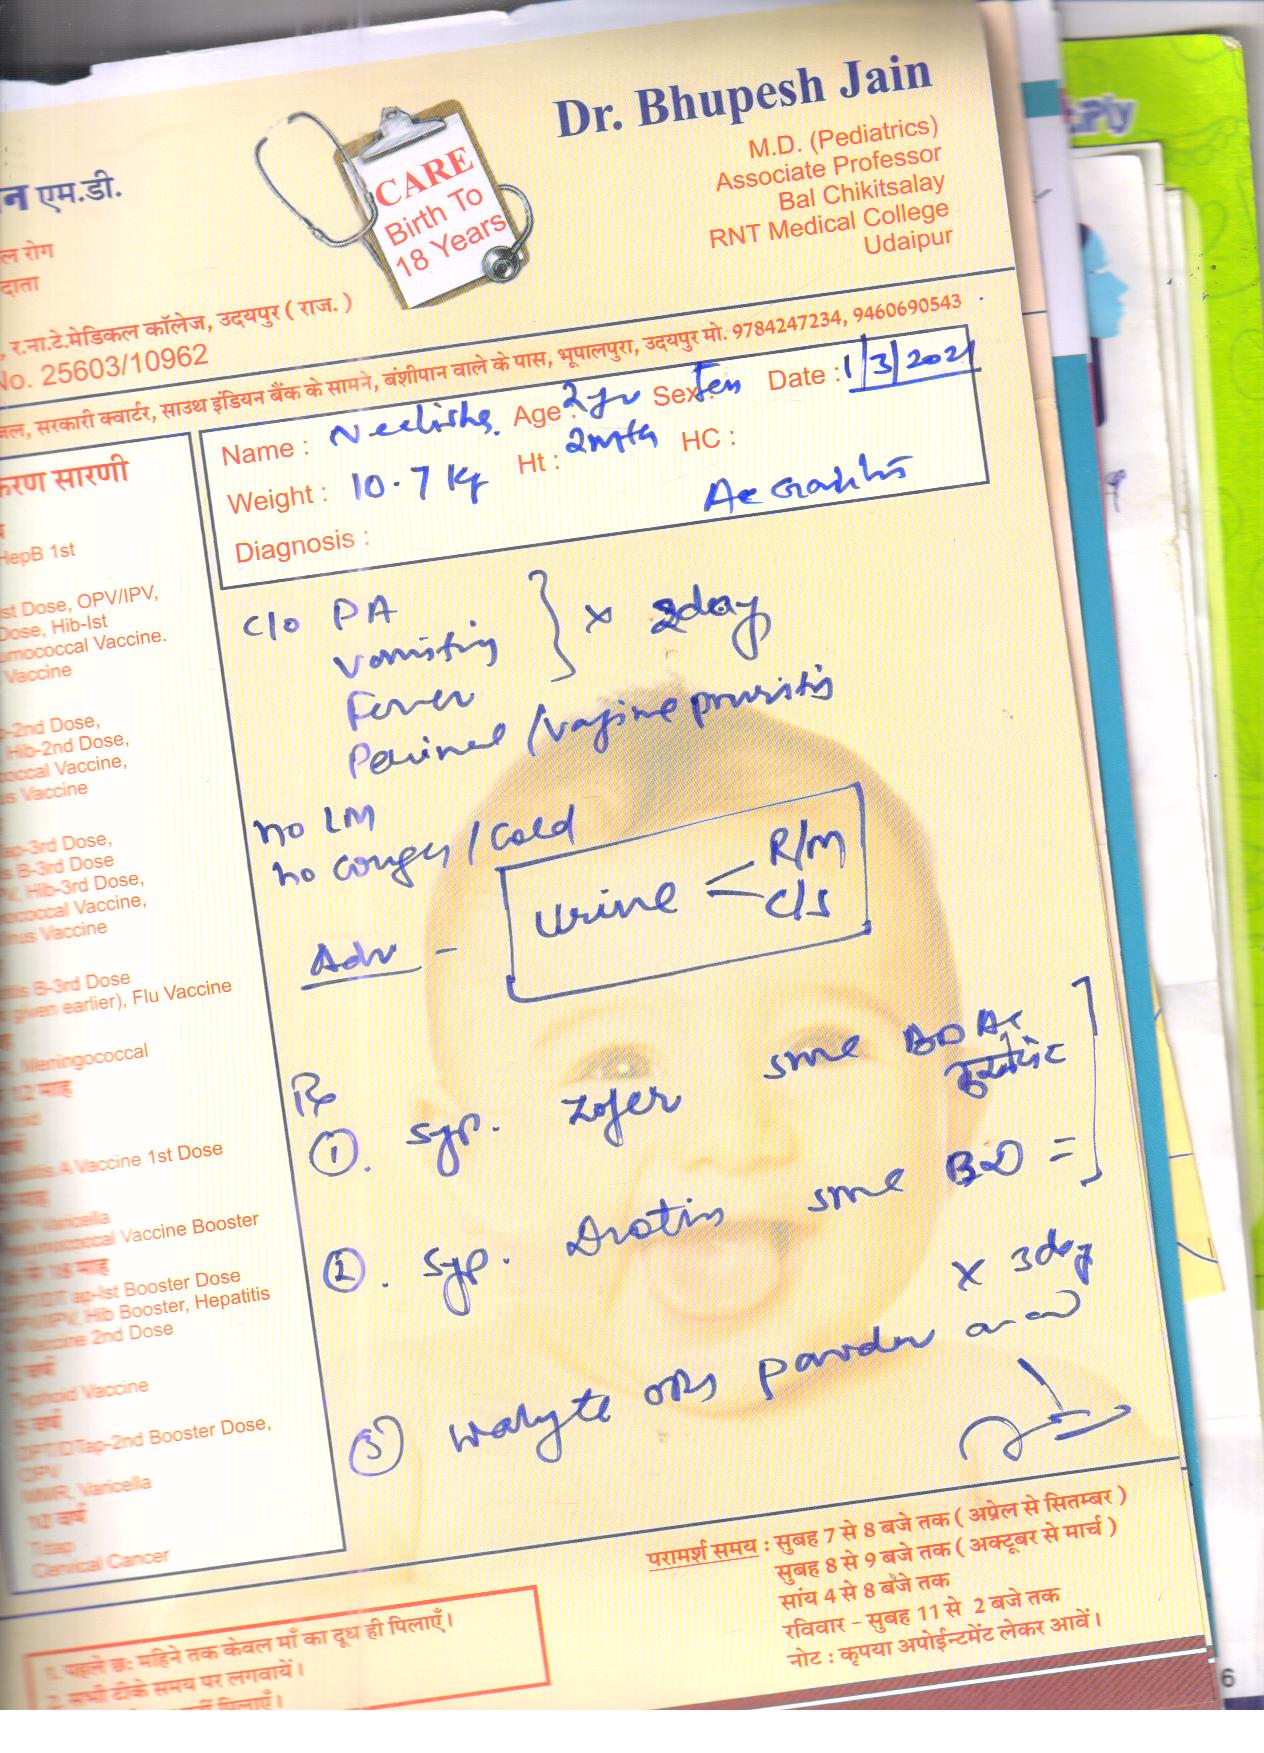 Dr. Bhupesh Jain
M.D. (Pediatrics)
Associate Professor
Bal Chikitsalay
RNT Medical College
Udaipur
CARE
Birth To
18 Years
न एम.डी.
ल रोग
दाता
, र.ना.टे.मेडिकल कॉलेज, उदयपुर ( राज. )
No. 25603/10962
सरकारी क्वार्टर, साउथ इंडियन बैंक के सामने, बंशीपान वाले के पास, भूपालपुरा, उदयपुर मो. 9784247234, 9460690543
Name : Neelisha Age : 2yr Sex : Fem Date : 1/3/2021
Weight : 10.7 kg Ht : 2mth HC :
Diagnosis : Ac Gastritis
c/o PA
vomiting } x 2day
Fever
Perineal / vagine pruritis
no LM
no cough / cold
Adv - Urine < R/M
C/S
Rx
1. Syp. Zofer 5ml BD Ac
2. Syp. Drotin 5ml BD =
x 3day
3 Walyte ORS powder
करण सारणी
HepB 1st
st Dose, OPV/IPV,
Dose, Hib-Ist
umococcal Vaccine.
Vaccine
-2nd Dose,
Hib-2nd Dose,
ococcal Vaccine,
us Vaccine
ap-3rd Dose,
s B-3rd Dose
PV, Hib-3rd Dose,
ococcal Vaccine,
irus Vaccine
B-3rd Dose
given earlier), Flu Vaccine
R, Meningococcal
12 माह
A Vaccine 1st Dose
Varicella
Vaccine Booster
18 माह
ap-Ist Booster Dose
Hib Booster, Hepatitis
Vaccine 2nd Dose
2 वर्ष
Typhoid Vaccine
5 वर्ष
DPT/DTap-2nd Booster Dose,
OPV
MMR, Varicella
10 वर्ष
Tdap
Cervical Cancer
परामर्श समय : सुबह 7 से 8 बजे तक ( अप्रेल से सितम्बर )
सुबह 8 से 9 बजे तक ( अक्टूबर से मार्च )
सांय 4 से 8 बजे तक
रविवार – सुबह 11 से 2 बजे तक
नोट : कृपया अपोईन्टमेंट लेकर आवें।
1. पहले छः महिने तक केवल माँ का दूध ही पिलाएँ।
2. सभी टीके समय पर लगवायें।
नहीं पिलाएँ।
6